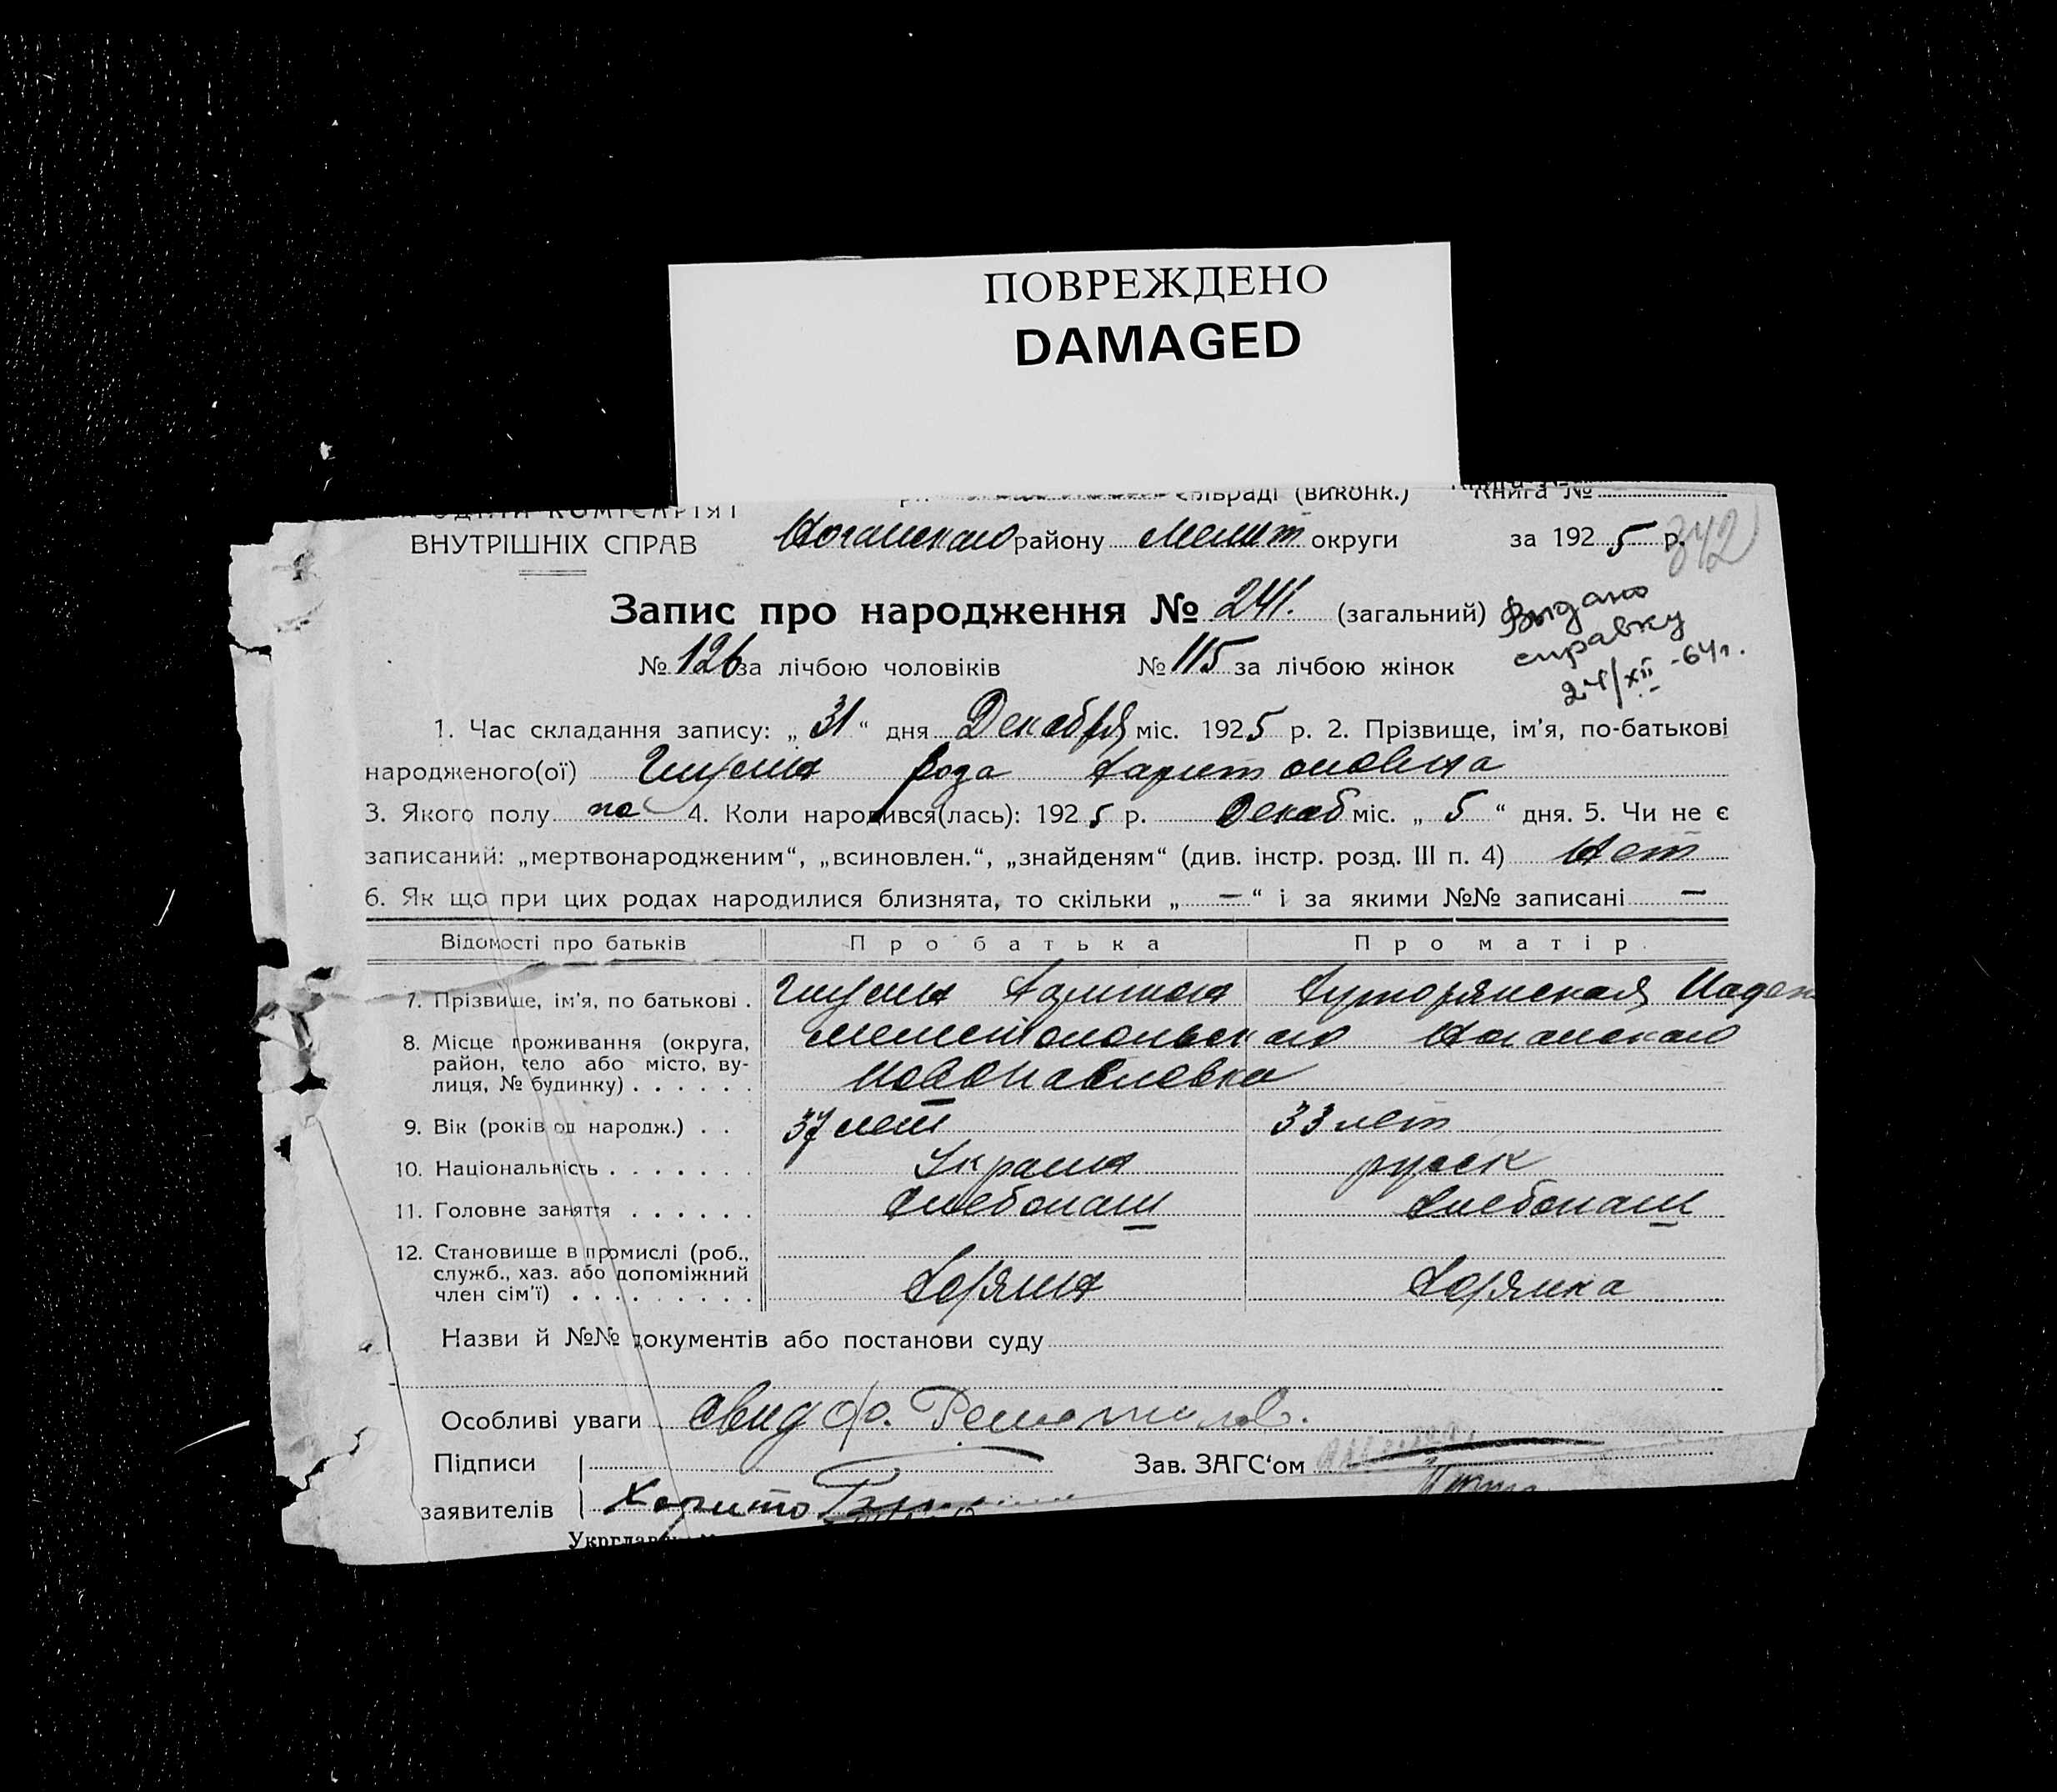 ПОВРЕЖДЕНО
DAMAGED
сільраді (виконк.) Книга №
ВНУТРІШНІХ СПРАВ Ногайского району Мелит округи за 1925 р. 342
Запис про народження № 241. (загальний) Выдано
№ 126 за лічбою чоловіків № 115 за лічбою жінок справку
24/XII-64г.
1. Час складання запису: „31“ дня Декабря міс. 1925 р. 2. Прізвище, ім'я, по-батькові
народженого(ої) Роза Харитоновна
3. Якого полу 4. Коли народився(лась): 1925 р. Декаб міс. „5“ дня. 5. Чи не є
записаний: „мертвонародженим“, „всиновлен.“, „знайденям“ (див. інстр. розд. III п. 4) Нет
6. Як що при цих родах народилися близнята, то скільки „—“ і за якими №№ записані —
Відомості про батьків Про батька Про матір
7. Прізвище, ім'я, по батькові . Харитон Хуторянская Надеж
8. Місце проживання (округа, Мелитопольского Ногайского
район, село або місто, ву-
лиця, № будинку) . . . . . . Новопавловка
9. Вік (років од народж.) . . 37 лет 33 лет
10. Національність . . . . . . . Украин русск
11. Головне заняття . . . . . . Хлебопаш Хлебопаш
12. Становище в промислі (роб.,
служб., хаз. або допоміжний
член сім'ї) . . . . . . . . . Хозяин Хозяйка
Назви й №№ документів або постанови суду
Особливі уваги
Підписи Зав. ЗАГС‘ом
заявителів Харито